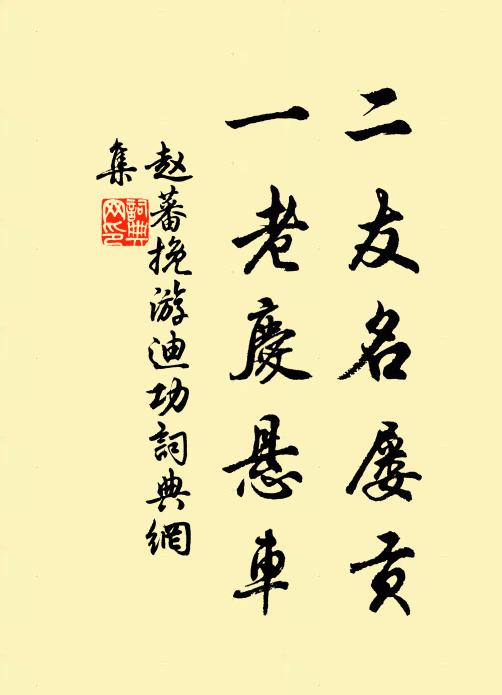 二友名屡贡
一老慶悬車
赵蕃挽游迪功詞典網
集
詞典
网印